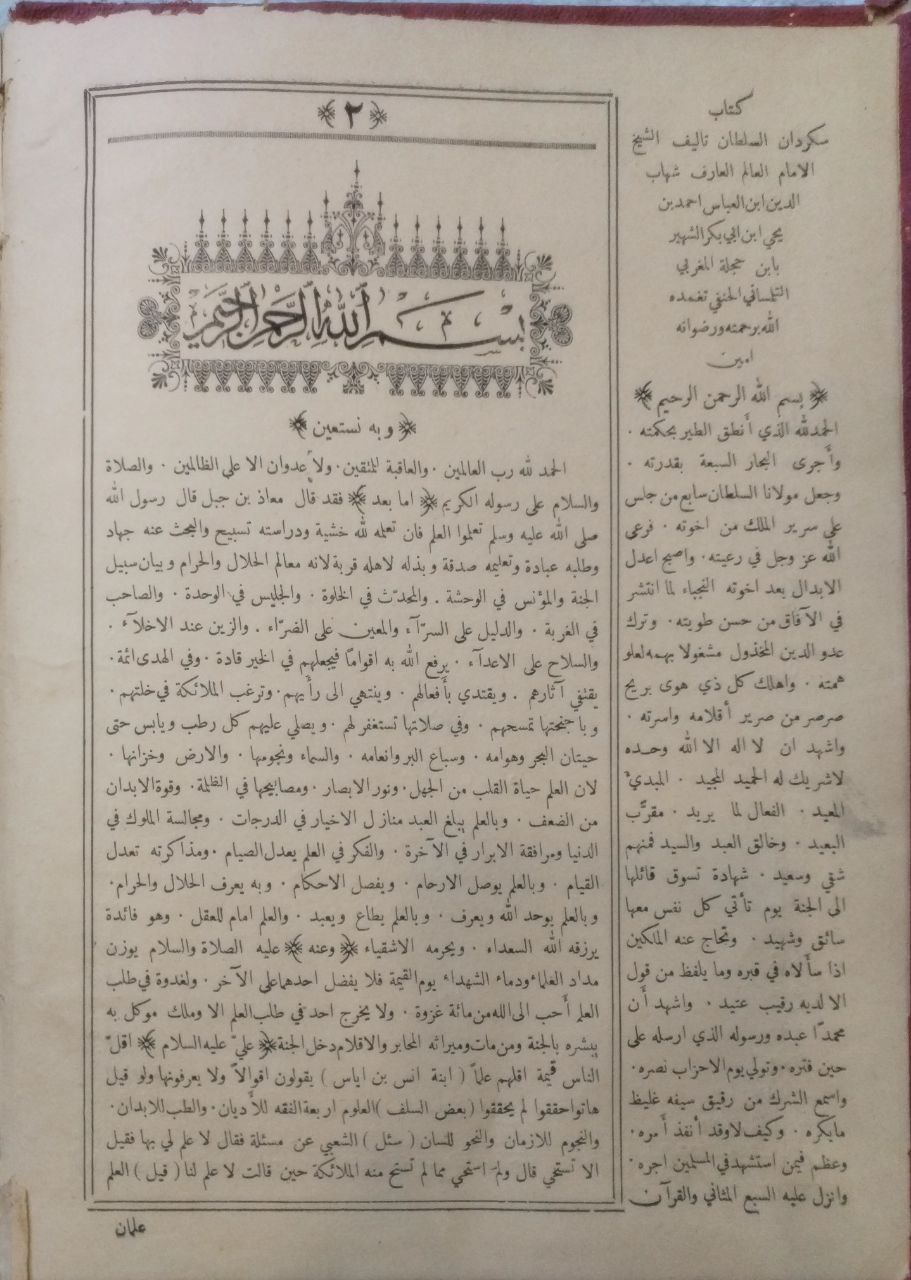 ﴿ ٢ ﴾
بسم الله الرحمن الرحيم
﴿ وبه نستعين ﴾
الحمد لله رب العالمين · والعاقبة للمتقين · ولا عدوان الا على الظالمين · والصلاة
والسلام على رسوله الكريم ﴿ اما بعد ﴾ فقد قال معاذ بن جبل قال رسول الله
صلى الله عليه وسلم تعلموا العلم فان تعلمه لله خشية ودراسته تسبيح والبحث عنه جهاد
وطلبه عبادة وتعليمه صدقة وبذله لاهله قربة لانه معالم الحلال والحرام وبيان سبيل
الجنة والمؤنس في الوحشة . والمحدّث في الخلوة · والجليس في الوحدة · والصاحب
في الغربة · والدليل على السرّآء والمعين على الضرّاء . والزين عند الاخلآء ·
والسلاح على الاعدآء · يرفع الله به اقواماً فيجعلهم في الخير قادة · وفي الهدى ائمة ·
يقتفي آثارهم . ويقتدي بأفعالهم · وينتهي الى رأيهم · وترغب الملائكة في خلتهم ·
وباجنحتها تمسحهم · وفي صلاتها تستغفر لهم · ويصلي عليهم كل رطب ويابس حتى
حيتان البحر وهوامه · وسباع البر وانعامه · والسماء ونجومها · والارض وخزانها ·
لان العلم حياة القلب من الجهل · ونور الابصار · ومصابيحها في الظلمة · وقوة الابدان
من الضعف · وبالعلم يبلغ العبد منازل الاخيار في الدرجات · ومجالسة الملوك في
الدنيا ومرافقة الابرار في الآخرة · والفكر في العلم يعدل الصيام · ومذاكرته تعدل
القيام · وبالعلم يوصل الارحام · ويفصل الاحكام · وبه يعرف الحلال والحرام ·
وبالعلم يوحد الله ويعرف · وبالعلم يطاع ويعبد · والعلم امام للعقل · وهو فائدة
يرزقه الله السعداء · ويحرمه الاشقياء ﴿ وعنه ﴾ عليه الصلاة والسلام يوزن
مداد العلماء ودماء الشهداء يوم القيمة فلا يفضل احدهما على الآخر · ولغدوة في طلب
العلم أحب الى الله من مائة غزوة · ولا يخرج احد في طلب العلم الا وملك موكل به
يبشره بالجنة ومن مات وميراثه المحابر والاقلام دخل الجنة ﴿ عليّ عليه السلام ﴾ اقلّ
الناس قيمة اقلهم علماً ( ابنة انس بن اياس ) يقولون اقوالاً ولا يعرفونها ولو قيل
هاتوا حققوا لم يحققوا ( بعض السلف ) العلوم اربعة الفقه للأديان · والطب للابدان ·
والنجوم للازمان والنحو للسان ( سئل ) الشعبي عن مسئلة فقال لا علم لي بها فقيل
الا تستحي قال ولم استحي مما لم تستح منه الملائكة حين قالت لا علم لنا ( قيل ) العلم
علمان
كتاب
سكردان السلطان تاليف الشيخ
الامام العالم العارف شهاب
الدين ابن العباس احمد بن
يحي ابن ابي بكر الشهير
بابن حجلة المغربي
التلمساني الحنفي تغمده
الله برحمته ورضوانه
امين
﴿ بسم الله الرحمن الرحيم ﴾
الحمد لله الذي أنطق الطير بحكمته ·
وأجرى البحار السبعة بقدرته ·
وجعل مولانا السلطان سابع من جلس
على سرير الملك من اخوته · فرعى
الله عز وجل في رعيته · واصبح اعدل
الابدال بعد اخوته النجباء لما انتشر
في الآفاق من حسن طويته · وترك
عدو الدين المخذول مشغولا بهمه لعلو
همته · واهلك كل ذي هوى بريح
صرصر من صرير أقلامه واسرته ·
واشهد ان لا اله الا الله وحده
لا شريك له الحميد المجيد · المبدئ
المعيد · الفعال لما يريد · مقرّب
البعيد · وخالق العبد والسيد فمنهم
شقي وسعيد · شهادة تسوق قائلها
الى الجنة يوم تأتي كل نفس معها
سائق وشهيد · وتحاج عنه الملكين
اذا سألاه في قبره وما يلفظ من قول
الا لديه رقيب عتيد · واشهد أن
محمدًا عبده ورسوله الذي ارسله على
حين فتره · وتولي يوم الاحزاب نصره ·
واسمع الشرك من رقيق سيفه غليظ
مايكره · وكيف لا وقد أنفذ أمره ·
وعظم فيمن استشهد في المسلمين اجره ·
وانزل عليه السبع المثاني والقرآن